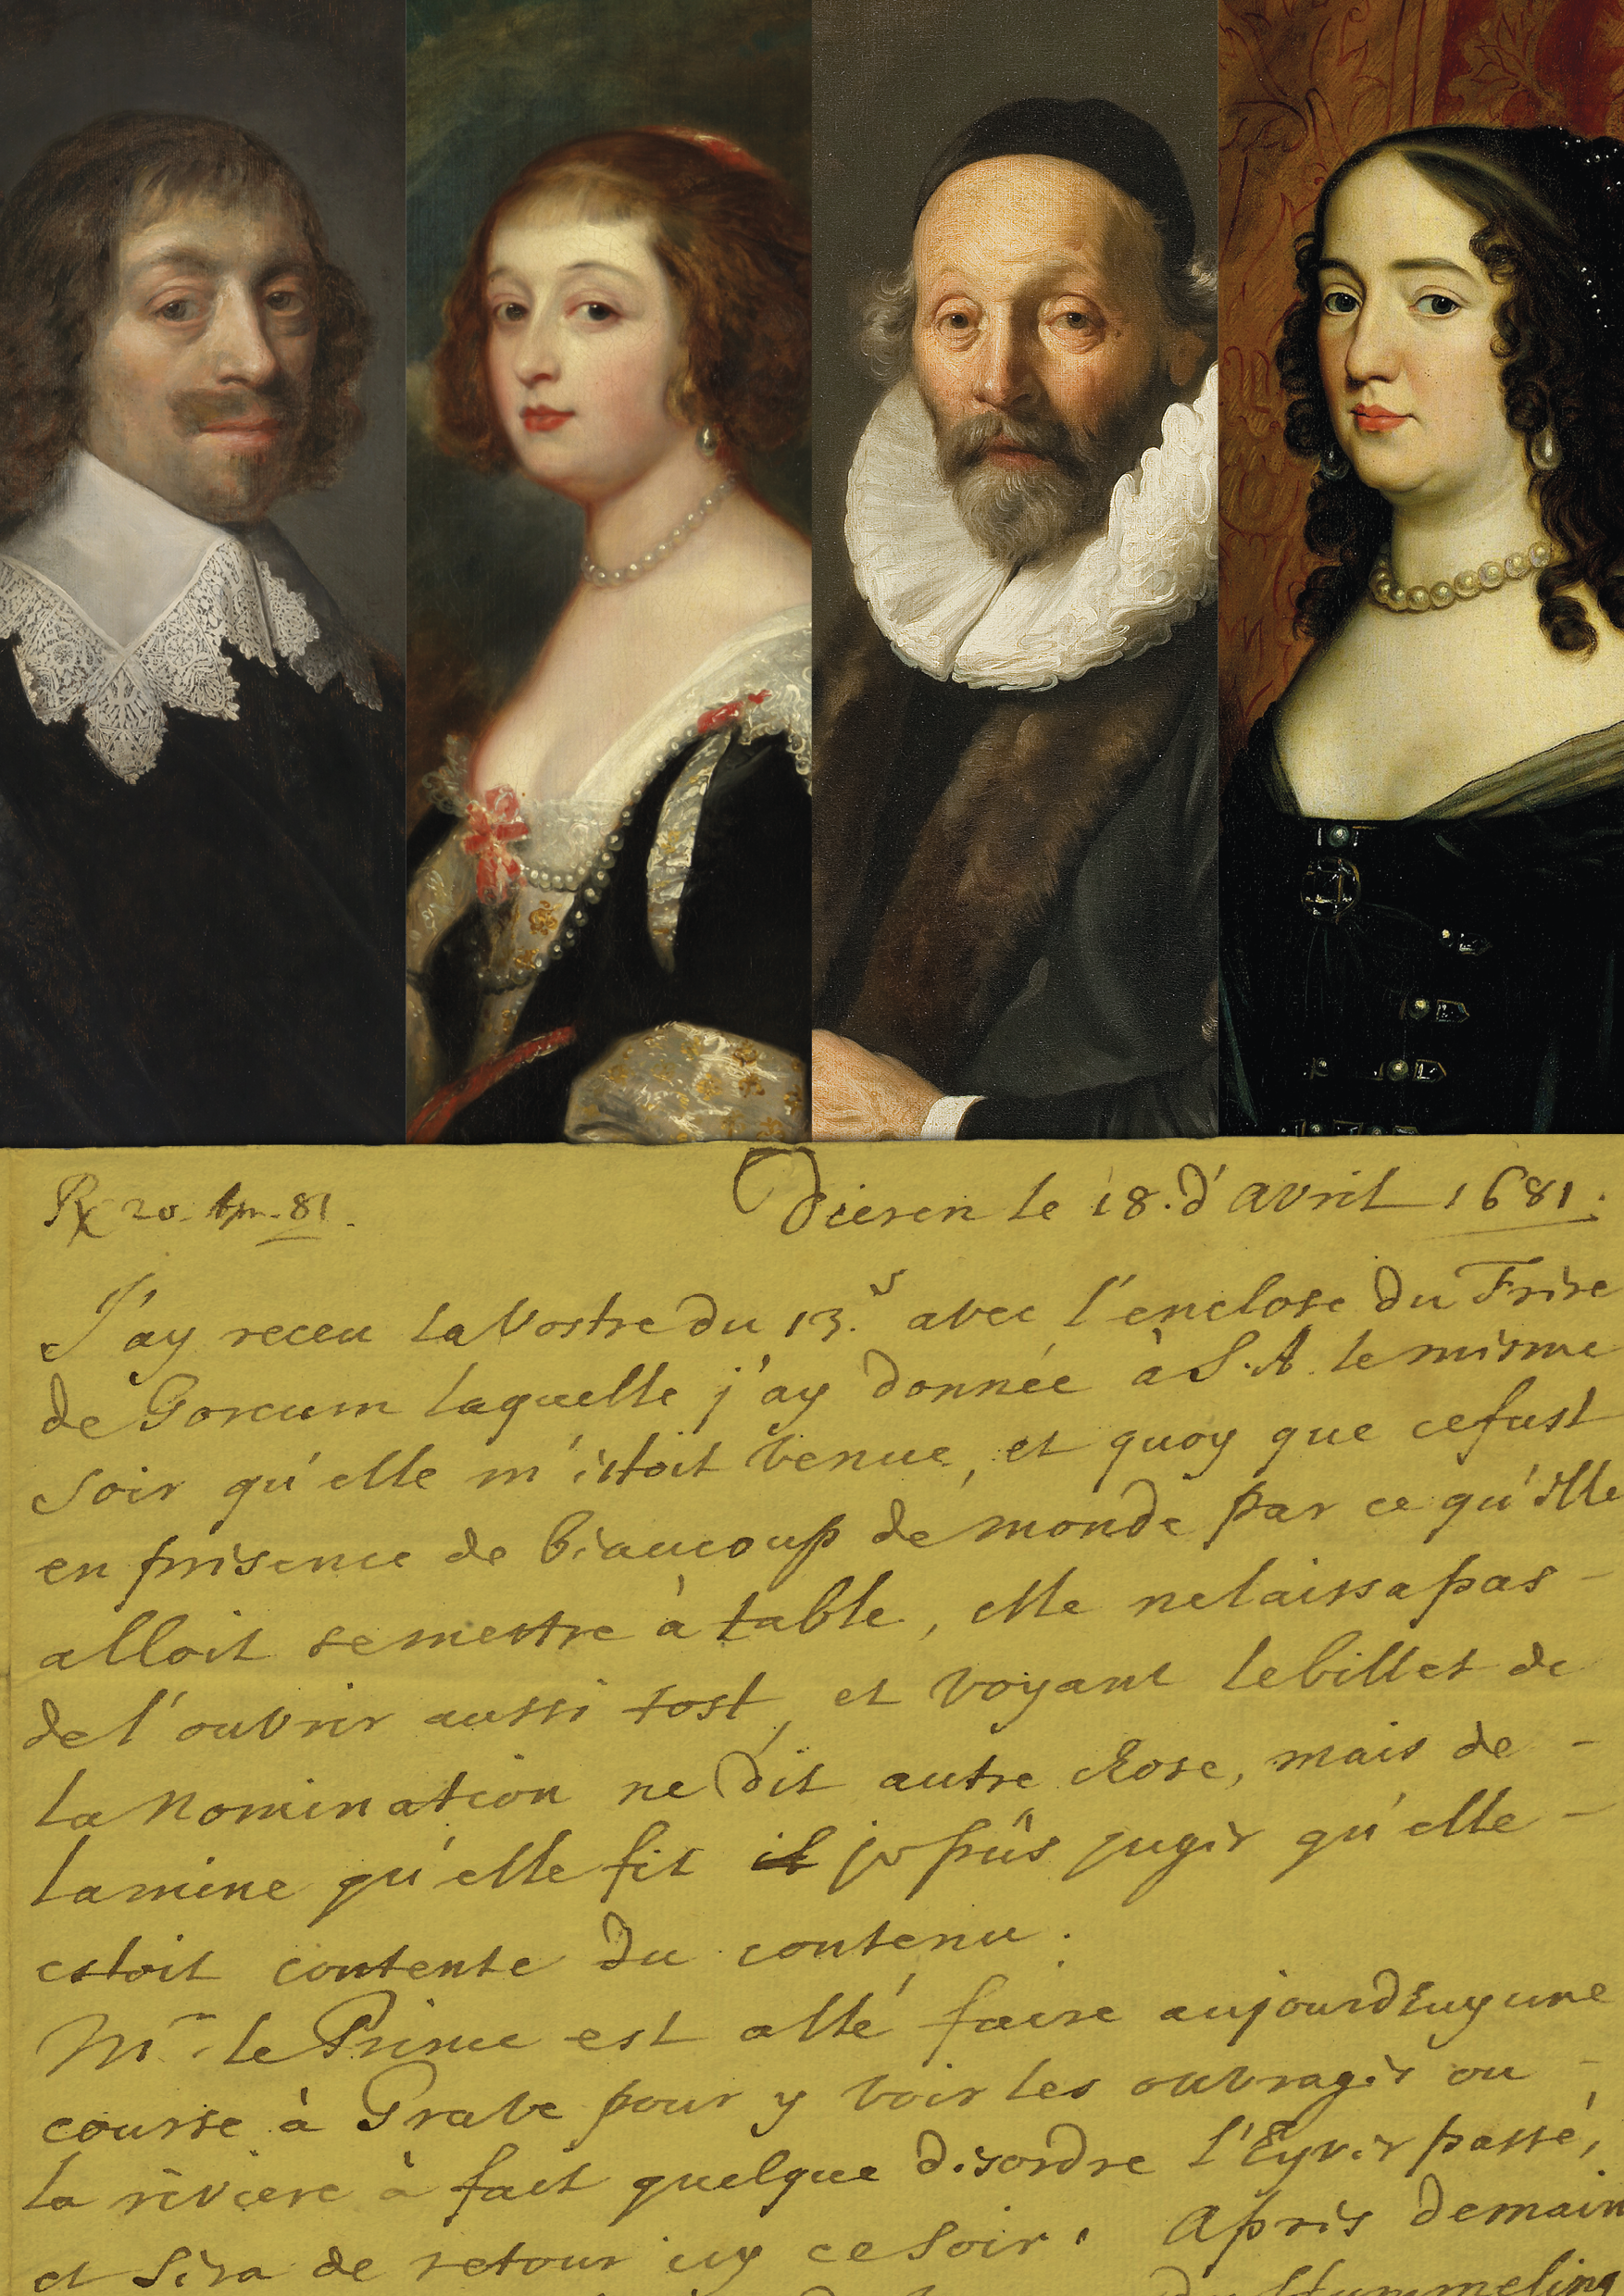 Rx 20. Apr. 81.
Dieren le 18. d'avril 1681.
J'ay receu la vostre du 13.e avec l'enclose du Frere
de Gorcum laquelle j'ay donnée à S. A. le mesme
soir qu'elle m'estoit venue, et quoy que ce fust
en presence de beaucoup de monde par ce qu'elle
alloit se mettre à table, elle ne laissa pas -
de l'ouvrir aussi tost, et voyant le billet de
la Nomination ne dit autre chose, mais de -
la mine qu'elle fit je pûs juger qu'elle -
estoit contente du contenu.
Mr. le Prince est allé faire aujourdhuy une
course à Grave pour y voir les ouvrages ou -
la riviere à fait quelque desordre l'Hyver passé,
et sera de retour icy ce soir. Apres demain